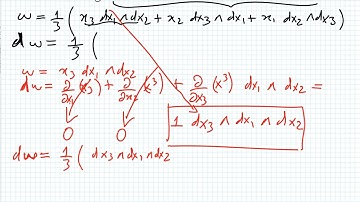 w = 1/3 ( x₃ dx₁ ∧ dx₂ + x₂ dx₃ ∧ dx₁ + x₁ dx₂ ∧ dx₃ )
dw = 1/3 (
w = x₃ dx₁ ∧ dx₂
dw = ∂/∂x₁ (x³) + ∂/∂x₂ (x³) + ∂/∂x₃ (x³) dx₁ ∧ dx₂ =
0 0 1 dx₃ ∧ dx₁ ∧ dx₂
dw = 1/3 ( dx₃ ∧ dx₁ ∧ dx₂